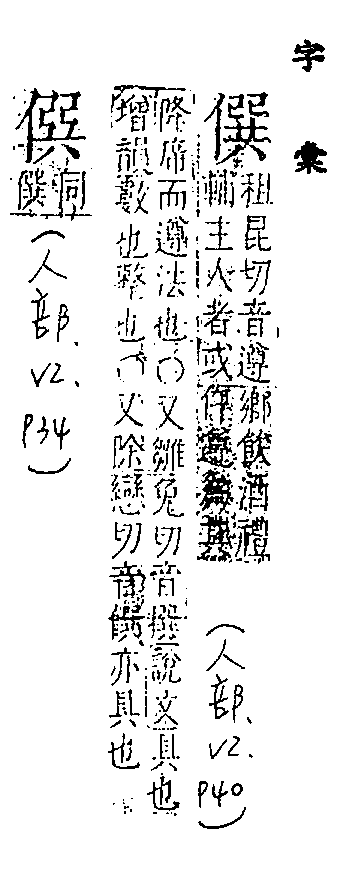 字彙
僎
租昆切音遵鄉飲酒禮
輔主人者或作遵為其
降席而遵法也〇又雛免切音撰說文具也
增韻數也整也〇又除戀切音饌亦具也
(人部、V2.P40)
同
僎
(人部、V2.P34)